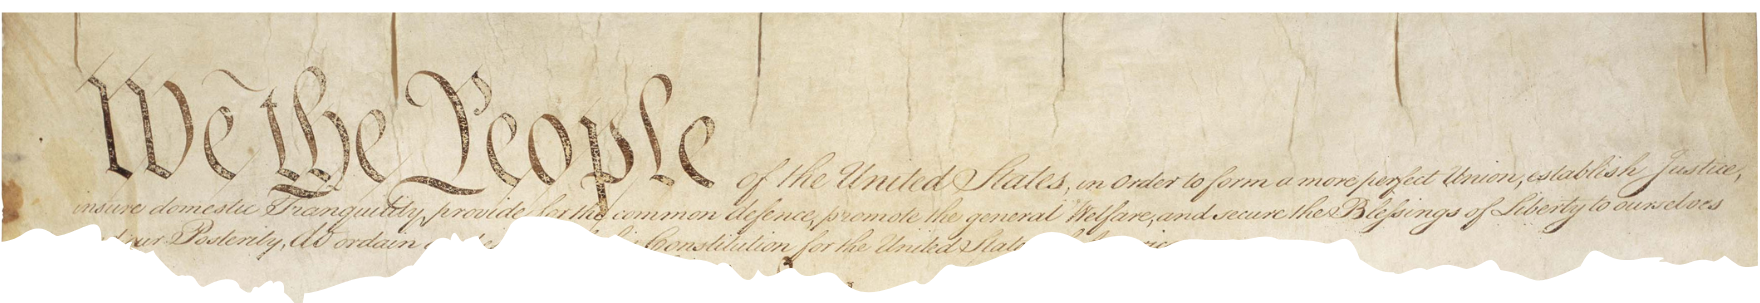 We the People of the United States, in Order to form a more perfect Union, establish Justice,
insure domestic Tranquility, provide for the common defence, promote the general Welfare, and secure the Blessings of Liberty to ourselves
our Posterity, do ordain Constitution for the United States